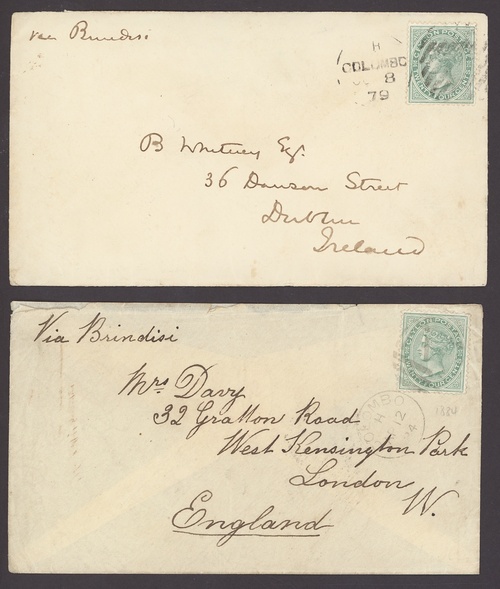 via Brindisi
H
COLOMBO
8
79
CEYLON POSTAGE
TWENTY FOUR CENTS
B Whitney Esq.
36 Dawson Street
Dublin
Ireland
Via Brindisi
CEYLON POSTAGE
TWENTY FOUR CENTS
COLOMBO
H
12
Mrs Davy
32 Gratton Road
West Kensington Park
London
W.
England